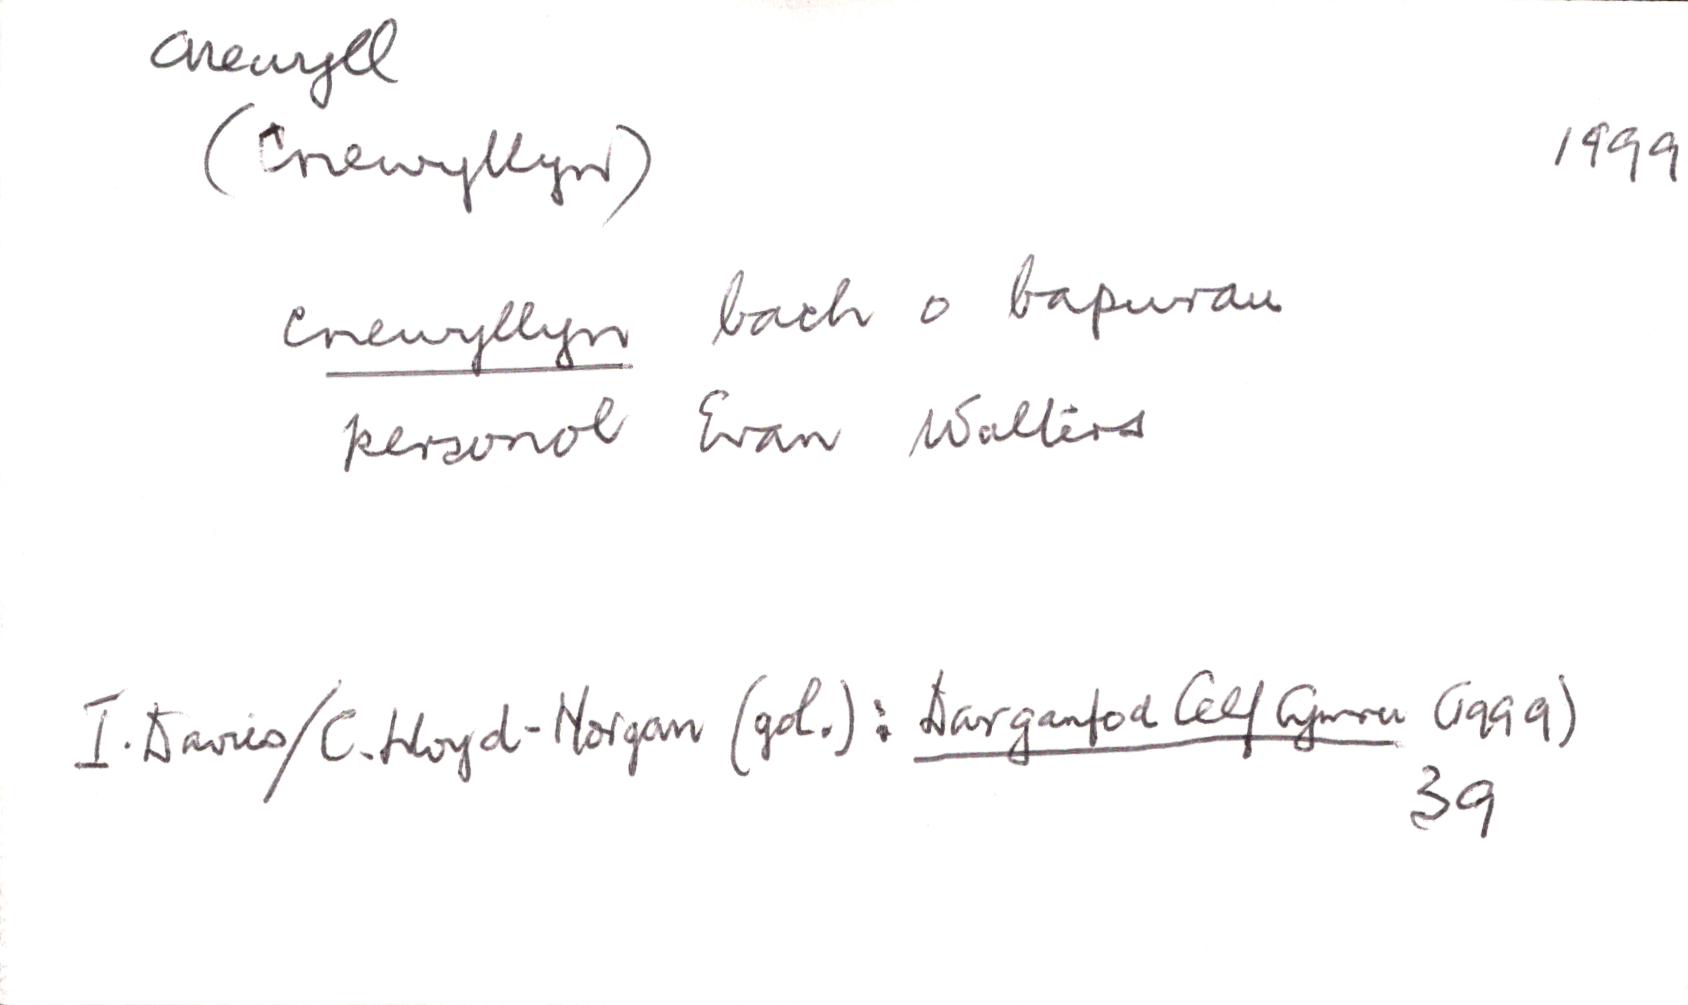 cnewyll
(cnewyllyn)
1999
cnewyllyn bach o bapurau
personol Evan Walters
I. Davies/C. Lloyd-Morgan (gol.): Darganfod Celf Cymru (1999)
39